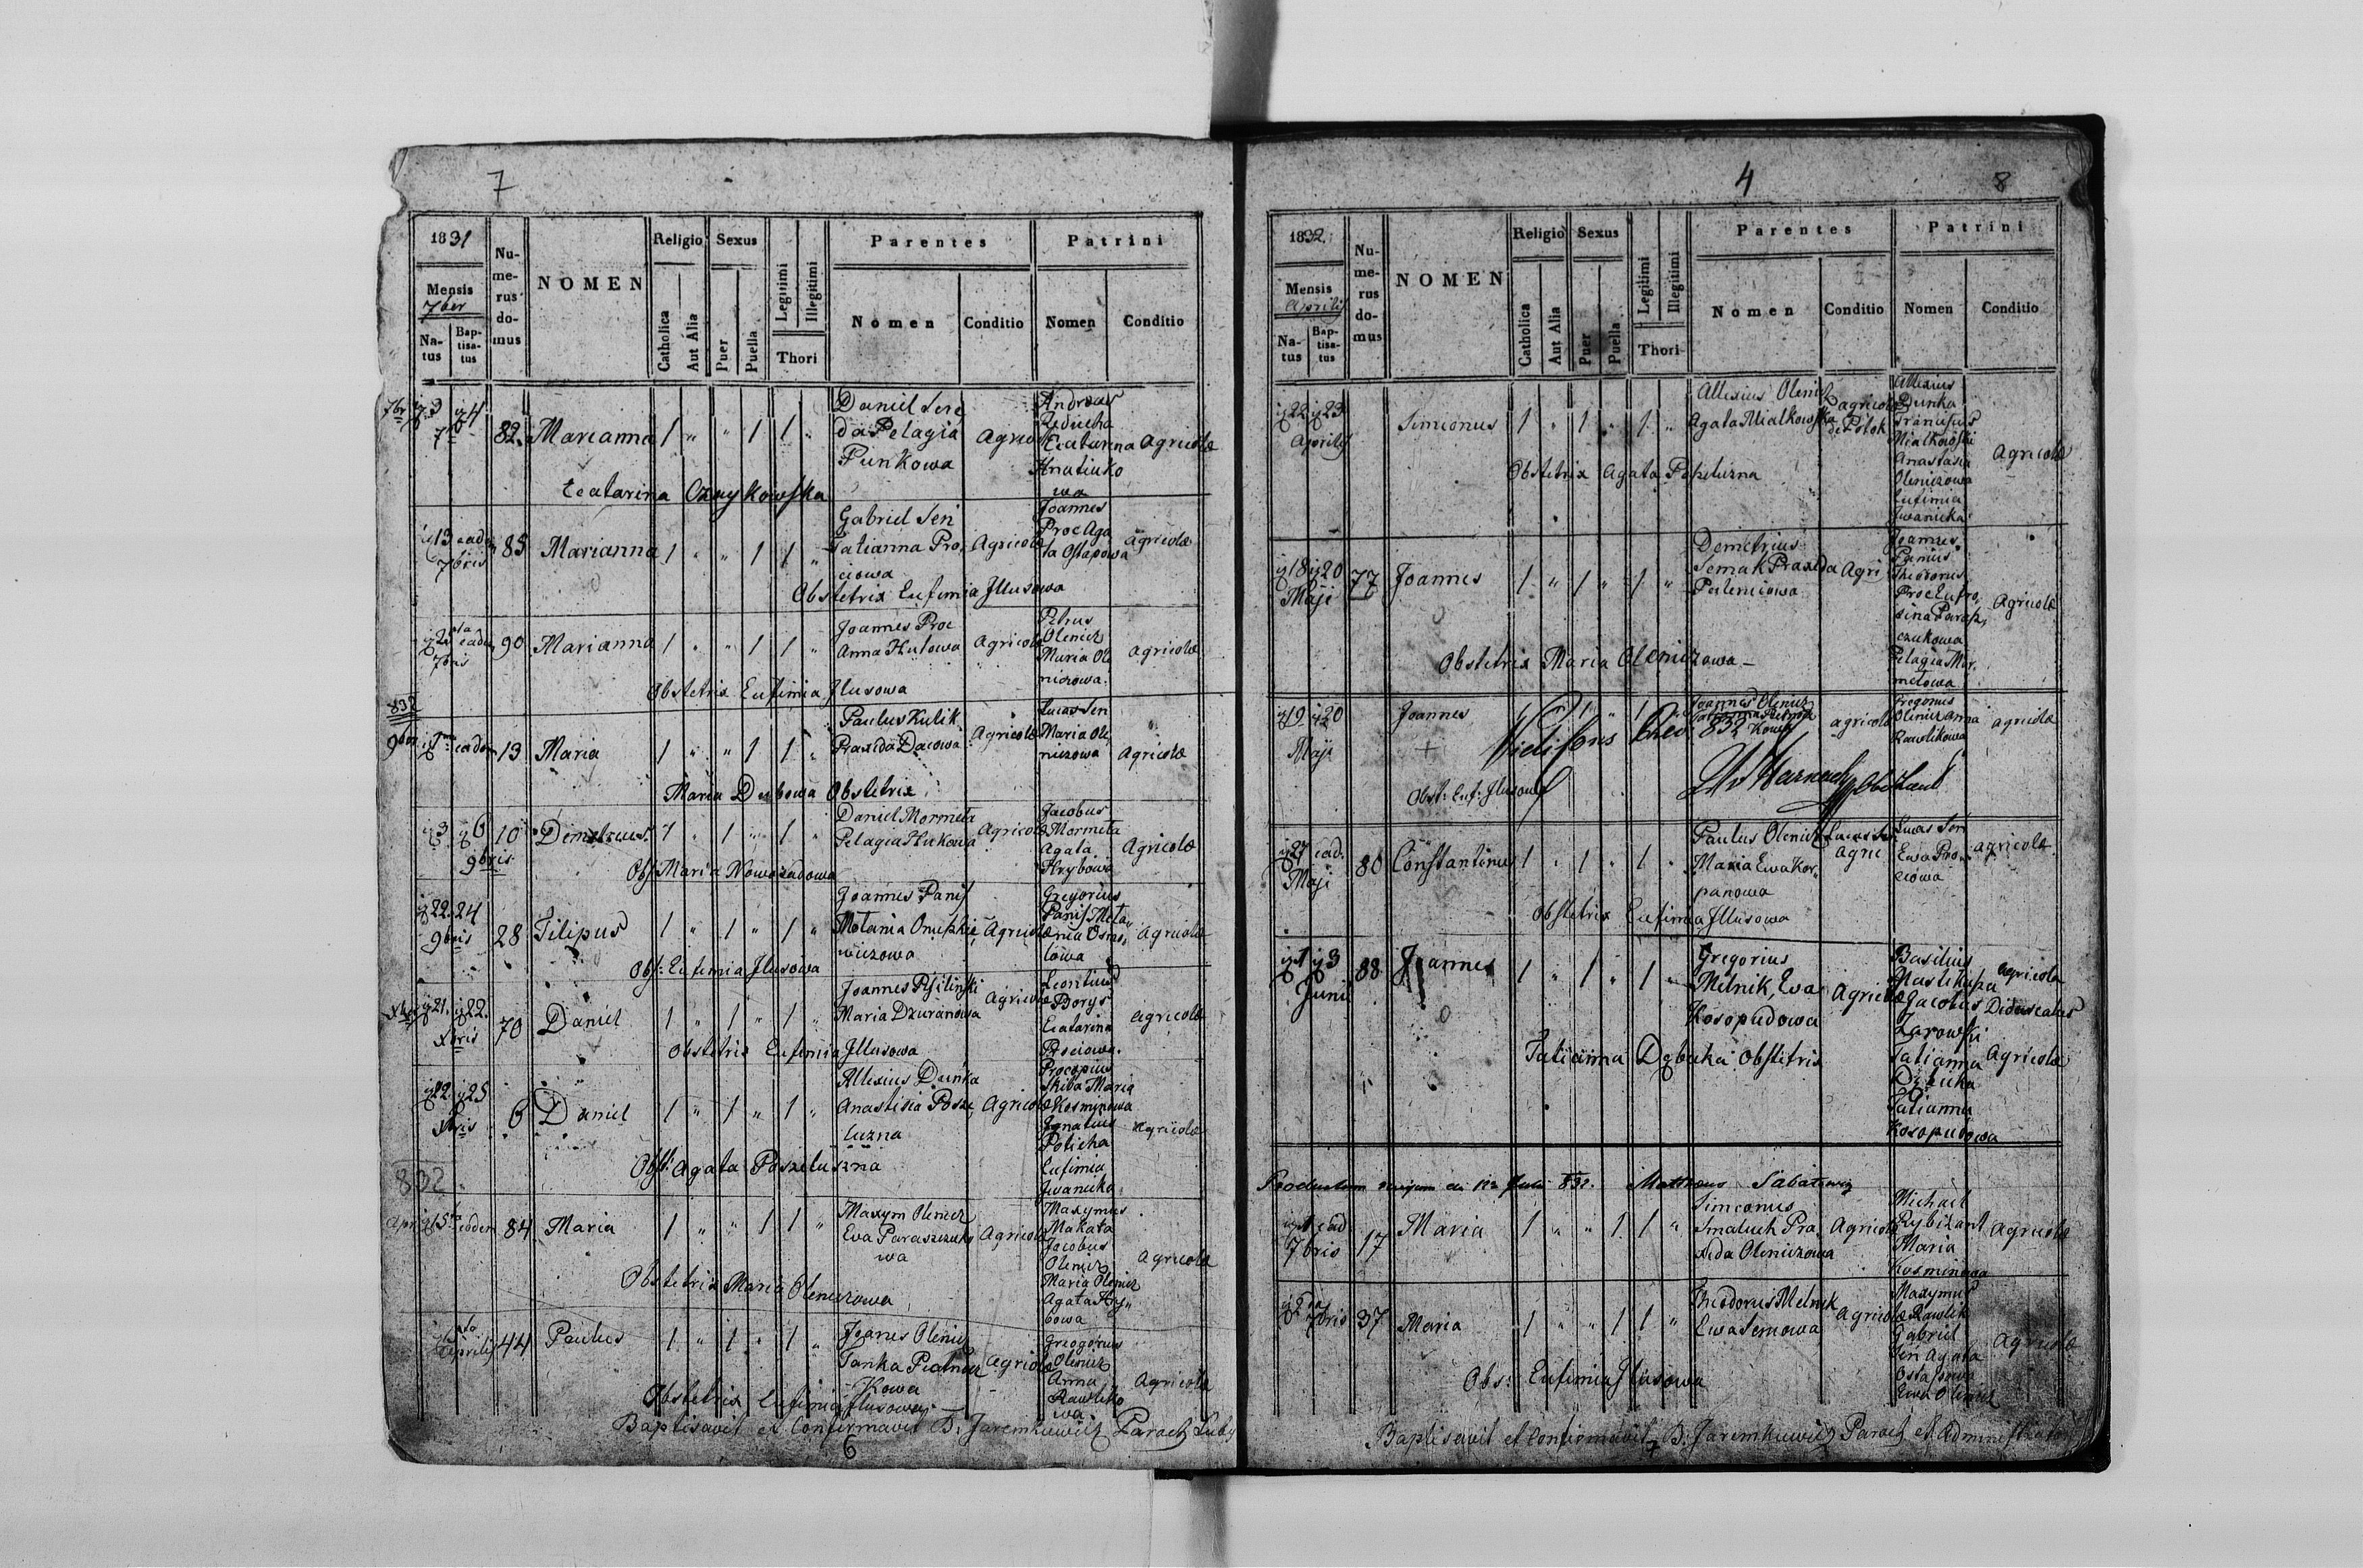 7
1831
Mensis
7ber
Na-
tus
Bap-
tisa-
tus
Nu-
me-
rus
do-
mus
NOMEN
Religio
Catholica
Aut Alia
Sexus
Puer
Puella
Legitimi
Illegitimi
Thori
Parentes
Nomen
Conditio
Patrini
Nomen
Conditio
82 Marianna 1 " " 1 1 "
Daniel
da Pelagia
Punkowa
Agricolæ
Andreas
Reducha
Ecatarina
Hnatiuko
wa
Agricolæ
Ecatarina
13 eadem
7bris
85 Marianna 1 " " 1 1 "
Gabriel Sen
Tatianna Pro,
ciowa
Agricolæ
Joannes
Proc Aga
ta Ostapowa
Agricolæ
Obstetrix Eufimia Jllusowa
eadem
7bris
90 Marianna 1 " " 1 1 "
Joannes Proc
Anna Hutowa
Agricolæ
Petrus
Olenicz
Maria Ole
niczowa.
Agricolæ
Obstetrix Eufimia Jlusowa
832
9ber
eadem 13 Maria 1 " " 1 1 "
Paulus Kulik
Praxida Dacowa
Agricolæ
Lucas Sen
Maria Ole
niczowa
Agricolæ
Maria Dubowa Obstetrix
3 6
9bris
10 Demetrius 1 " 1 " 1 "
Daniel Mormeta
Pelagia Hukowa
Agricolæ
Jacobus
Mormeta
Agata
Hrybowa
Agricolæ
Obs: Maria Nowosadowa
22 24
9bris
28 Filipus 1 " 1 " 1 "
Joannes Panis
Melania
wiczowa
Agricolæ
Gregorius
Panis Mela"
nia
towa
Agricolæ
Obs: Eufimia Jlusowa
21. 22.
Xbris
70 Daniel 1 " 1 " 1 "
Joannes
Maria Dzuranowa
Agricolæ
Leontius
Borys
Ecatarina
Prociowa.
Agricolæ
Obstetrix Eufimia Jllusowa
22 25
Xbris
6 Daniel 1 " 1 " 1 "
Allexius Dunka
Anastisia Posze
luzna
Agricolæ
Procopius
Skiba Maria
Kosminowa
Ignatius
Poticha
Eufimia
Jwanicka
Agricolæ
Obst: Agata Poszeluszna
832
Aprilis 5 eodem
84 Maria 1 " " 1 1 "
Maxym Olenicz
Ewa Paraszczuko
wa
Agricolæ
Maxymus
Makata
Jacobus
Olenicz
Maria Olenicz
Agata Hry"
bowa
Agricolæ
Obstetrix Maria Oleniczowa
Aprilis
44 Paulus 1 " 1 " 1 "
Joanes Olenicz
Tanka
Kowa
Agricolæ
Greogorius
Olenicz
Anna
Rawliko
wa
Agricolæ
Obstetrix Eufimia Jlusowa
Baptisavit et Confirmavit B: Jaremkiewicz Paroch
6
4
8
1832.
Mensis
Aprilis
Na-
tus
Bap-
tisa-
tus
Nu-
me-
rus
do-
mus
NOMEN
Religio
Catholica
Aut Alia
Sexus
Puer
Puella
Legitimi
Illegitimi
Thori
Parentes
Nomen
Conditio
Patrini
Nomen
Conditio
22 23
Aprilis
Simeonus 1 " 1 " 1 "
Allexius Olenicz
Agata Mialkowska
agricolæ
de Potok
Allexius
Dunka
Franciscus
Mialkowski
Anastasia
Oleniczowa
Eufimia
Jwanicka
Agricolæ
Obstetrix Agata
18 20
Maji
77 Joannes 1 " 1 " 1 "
Demetrius
Semak Praxeda
Agri
Joannes
Panius
Theodorus
Proc Eufro,
sina Parasz,
czukowa
Pelagia Mor,
metowa
Agricolæ
Obstetrix Maria Oleniczowa
19 20
Maji
Joannes
Joannes Olenicz
agricolæ
Gregorius
Olenicz Anna
Rawlikowa
agricolæ
832
Obst: Euf: Jlusowa
27 ead.
Maji
80 Constantinus 1 " 1 " 1 "
Paulus Olenicz
Maria Ewa Kor"
panowa
Agric
Lucas Sen
Ewa Pro"
ciowa
agricolæ
Obstetrix Eufimia Jllusowa
1 3
Junii
88 Joannes 1 " 1 " 1 "
Gregorius
Melnik, Ewa
Kosopudowa
Agricolæ
Basilius
agricola
Jacobus
Zarowski
Tatianna
Tatianna
Kosopudowa
Agricolæ
Tatianna Obstetrix
832. Mattheus Sabatowicz
1 ead
7bris
17 Maria 1 " " 1 1 "
Simeonus
Smaluch Pra,
xeda Oleniczowa
Agricolæ
Michael
Maria
Kosminowa
Agricolæ
7bris
37 Maria 1 " " 1 1 "
Theodorus Melnik
Ewa Senowa
Agricolæ
Maxymus
Rawlik
Gabriel
Sen Agata
Ostapowa
Ewa Olenicz
Agricolæ
Obs: Eufimia Jlusowa
Baptisavit et Confirmavit B: Jaremkiewicz Paroch et Administrator
7